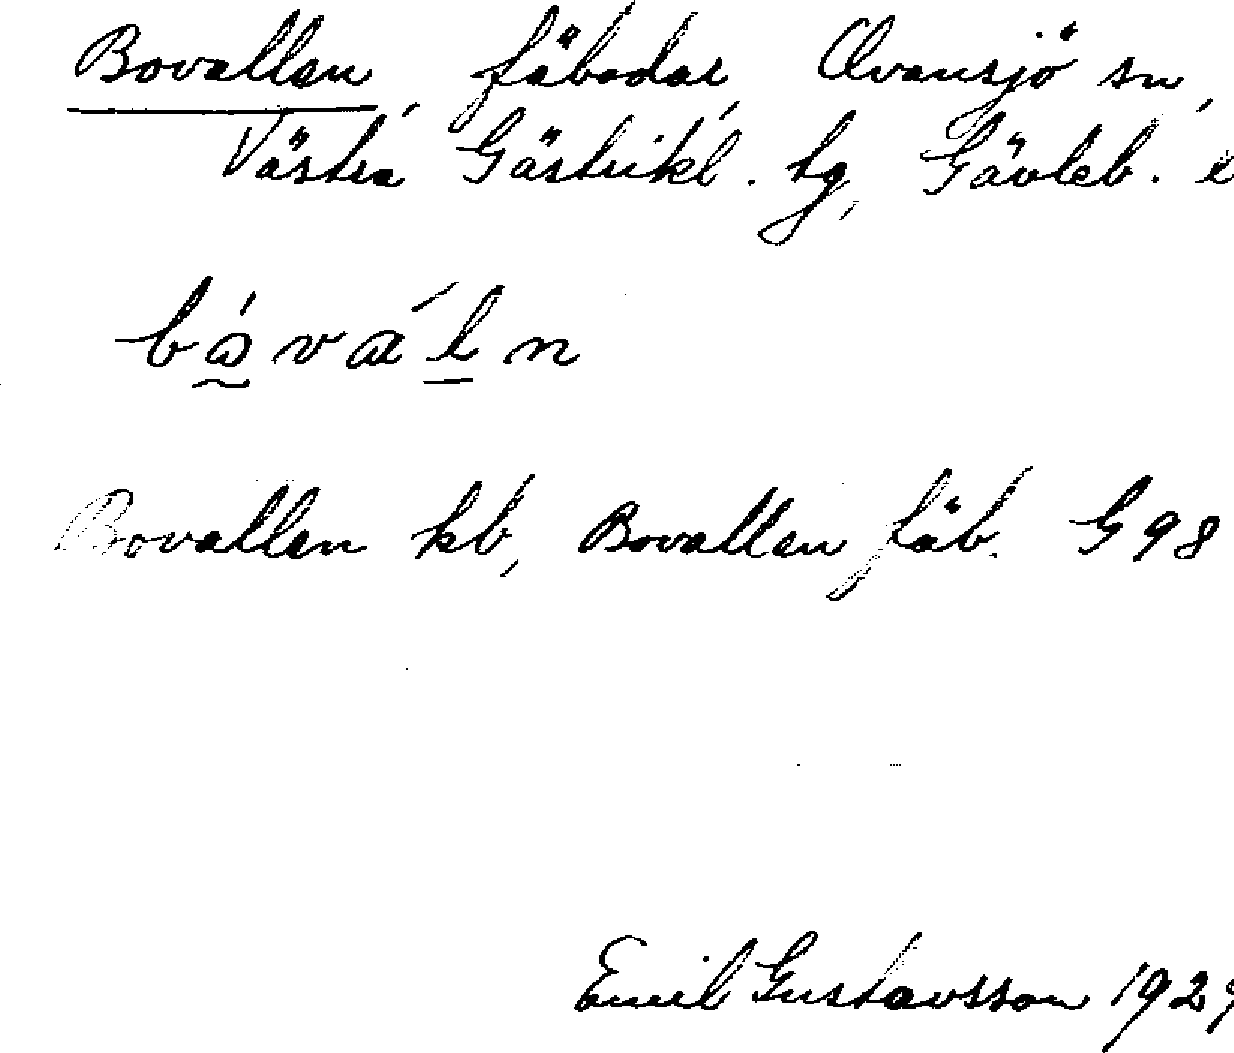 Bovallen, fäbodar, Ovansjö sn,
Västra Gästrikl. tg, Gävleb. l
Bovallen kb, Bovallen fäb. G 98
Emil Gustavsson 192